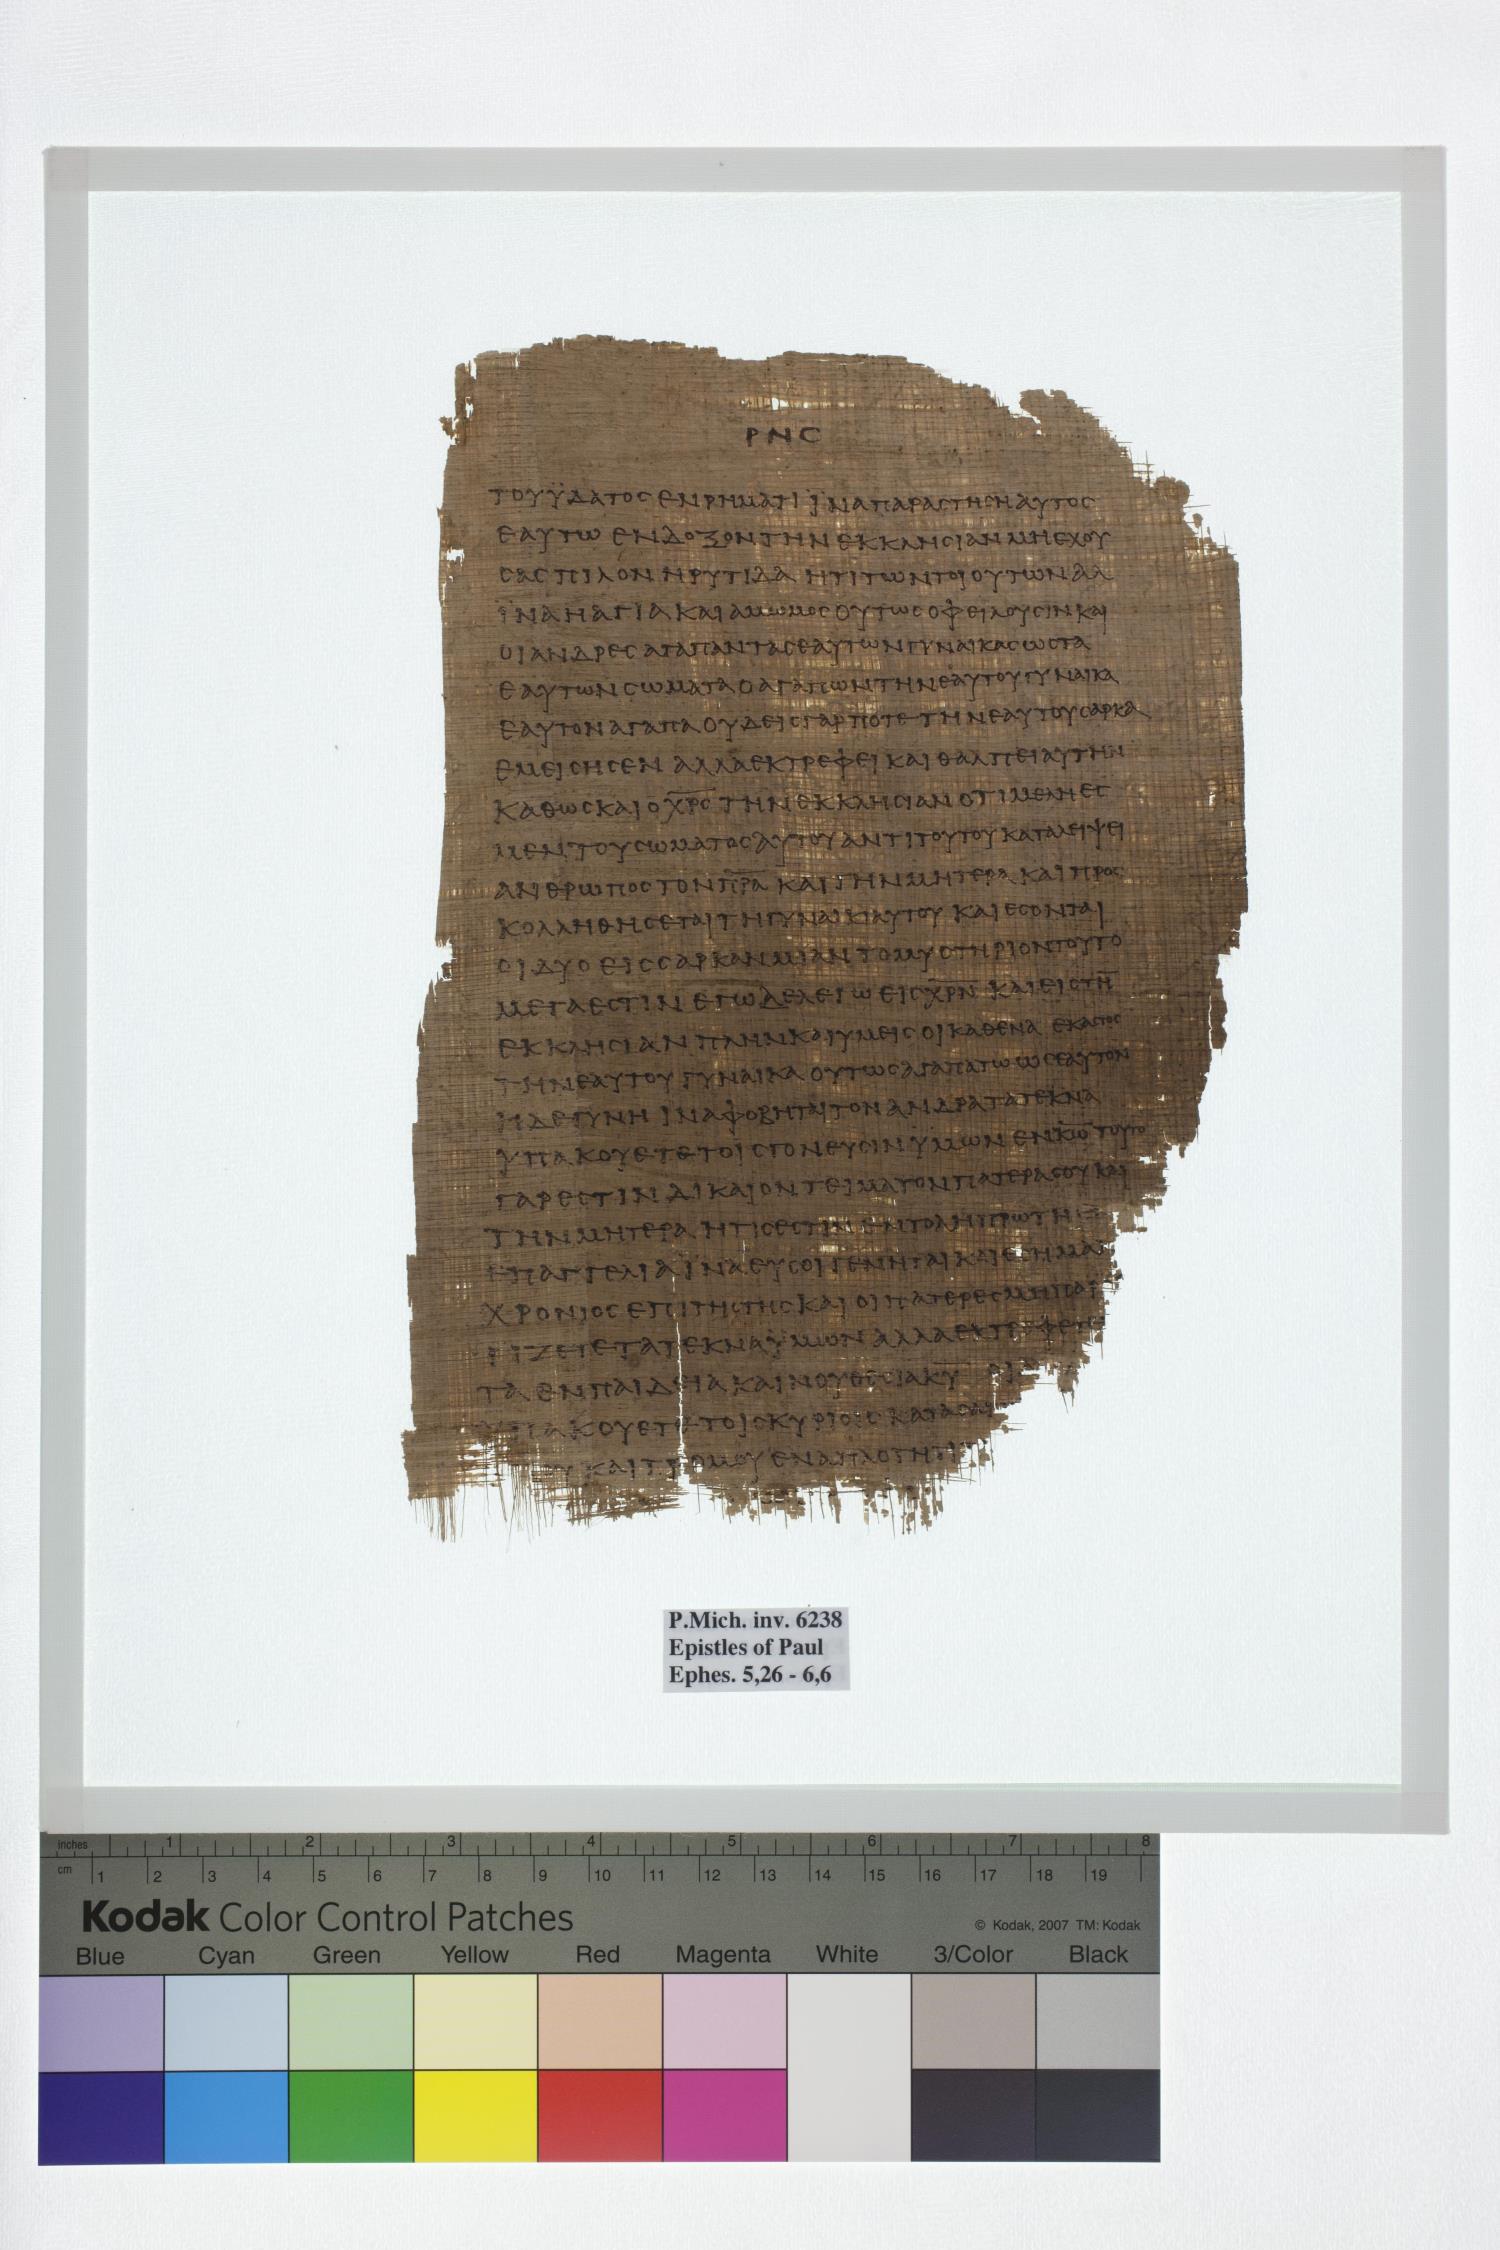 ΡΝϹ
ΤΟΥ ΫΔΑΤΟϹ ΕΝ ΡΗΜΑΤΙ ΪΝΑ ΠΑΡΑϹΤΗϹΗ ΑΥΤΟϹ
ΕΑΥΤΩ ΕΝΔΟΞΟΝ ΤΗΝ ΕΚΚΛΗϹΙΑΝ ΜΗ ΕΧΟΥ
ϹΑϹΠΙΛΟΝ Η ΡΥΤΙΔΑ Η ΤΙ ΤΩΝ ΤΟΙΟΥΤΩΝ ΑΛ
ΪΝΑ Η ΑΓΙΑ ΚΑΙ ΑΜΩΜΟϹ ΟΥΤΩϹ ΟΦΕΙΛΟΥϹΙΝ ΚΑΙ
ΟΙ ΑΝΔΡΕϹ ΑΓΑΠΑΝ ΤΑϹ ΕΑΥΤΩΝ ΓΥΝΑΙΚΑϹ ΩϹ ΤΑ
ΕΑΥΤΩΝ ϹΩΜΑΤΑ Ο ΑΓΑΠΩΝ ΤΗΝ ΕΑΥΤΟΥ ΓΥΝΑΙΚΑ
ΕΑΥΤΟΝ ΑΓΑΠΑ ΟΥΔΕΙϹ ΓΑΡ ΠΟΤΕ ΤΗΝ ΕΑΥΤΟΥ ϹΑΡΚΑ
ΕΜΕΙϹΗϹΕΝ ΑΛΛΑ ΕΚΤΡΕΦΕΙ ΚΑΙ ΘΑΛΠΕΙ ΑΥΤΗΝ
ΚΑΘΩϹ ΚΑΙ Ο Χ̅Ρ̅Ϲ̅ ΤΗΝ ΕΚΚΛΗϹΙΑΝ ΟΤΙ ΜΕΛΗ ΕϹ
ΜΕΝ ΤΟΥ ϹΩΜΑΤΟϹ ΑΥΤΟΥ ΑΝΤΙ ΤΟΥΤΟΥ ΚΑΤΑΛΕΙΨΕΙ
ΑΝΘΡΩΠΟϹ ΤΟΝ Π̅Ρ̅Α̅ ΚΑΙ ΤΗΝ ΜΗΤΕΡΑ ΚΑΙ ΠΡΟϹ
ΚΟΛΛΗΘΗϹΕΤΑΙ ΤΗ ΓΥΝΑΙΚΙ ΑΥΤΟΥ ΚΑΙ ΕϹΟΝΤΑΙ
ΟΙ ΔΥΟ ΕΙϹ ϹΑΡΚΑΝ ΜΙΑΝ ΤΟ ΜΥϹΤΗΡΙΟΝ ΤΟΥΤΟ
ΜΕΓΑ ΕϹΤΙΝ ΕΓΩ ΔΕ ΛΕΓΩ ΕΙϹ Χ̅Ρ̅Ν̅ ΚΑΙ ΕΙϹ ΤΗ̅
ΕΚΚΛΗϹΙΑΝ ΠΛΗΝ ΚΑΙ ΥΜΕΙϹ ΟΙ ΚΑΘ ΕΝΑ ΕΚΑϹΤΟϹ
ΤΗΝ ΕΑΥΤΟΥ ΓΥΝΑΙΚΑ ΟΥΤΩϹ ΑΓΑΠΑΤΩ ΩϹ ΕΑΥΤΟΝ
Η ΔΕ ΓΥΝΗ ΙΝΑ ΦΟΒΗΤΑΙ ΤΟΝ ΑΝΔΡΑ ΤΑ ΤΕΚΝΑ
ΥΠΑΚΟΥΕΤΕ ΤΟΙϹ ΓΟΝΕΥϹΙΝ ΫΜΩΝ ΕΝ Κ̅Ω̅ ΤΟΥΤΟ
ΓΑΡ ΕϹΤΙΝ ΔΙΚΑΙΟΝ ΤΕΙΜΑ ΤΟΝ ΠΑΤΕΡΑ ϹΟΥ ΚΑΙ
ΤΗΝ ΜΗΤΕΡΑ ΗΤΙϹ ΕϹΤΙΝ ΕΝΤΟΛΗ ΠΡΩΤΗ
ΕΠΑΓΓΕΛΙΑ ΪΝΑ ΕΥ ϹΟΙ ΓΕΝΗΤΑΙ ΚΑΙ ΕϹΗ ΜΑ
ΧΡΟΝΙΟϹ ΕΠΙ ΤΗϹ ΓΗϹ ΚΑΙ ΟΙ ΠΑΤΕΡΕϹ ΜΗ ΠΑΡ
ΓΙΖΕΤΕ ΤΑ ΤΕΚΝΑ ΫΜΩΝ ΑΛΛΑ ΕΚΤΡΕΦΕΤΕ
ΤΑ ΕΝ ΠΑΙΔΕΙΑ ΚΑΙ ΝΟΥΘΕϹΙΑ Κ̅Υ̅ ΟΙ
ΥΠΑΚΟΥΕΤΕ ΤΟΙϹ ΚΥΡΙΟΙϹ ΚΑΤΑ ϹΑΡ
ΟΥ ΚΑΙ ΤΡΟΜΟΥ ΕΝ ΑΠΛΟΤΗΤΙ
P.Mich. inv. 6238
Epistles of Paul
Ephes. 5,26 - 6,6
inches 1 2 3 4 5 6 7 8
cm 1 2 3 4 5 6 7 8 9 10 11 12 13 14 15 16 17 18 19
Kodak Color Control Patches
© Kodak, 2007 TM: Kodak
Blue Cyan Green Yellow Red Magenta White 3/Color Black